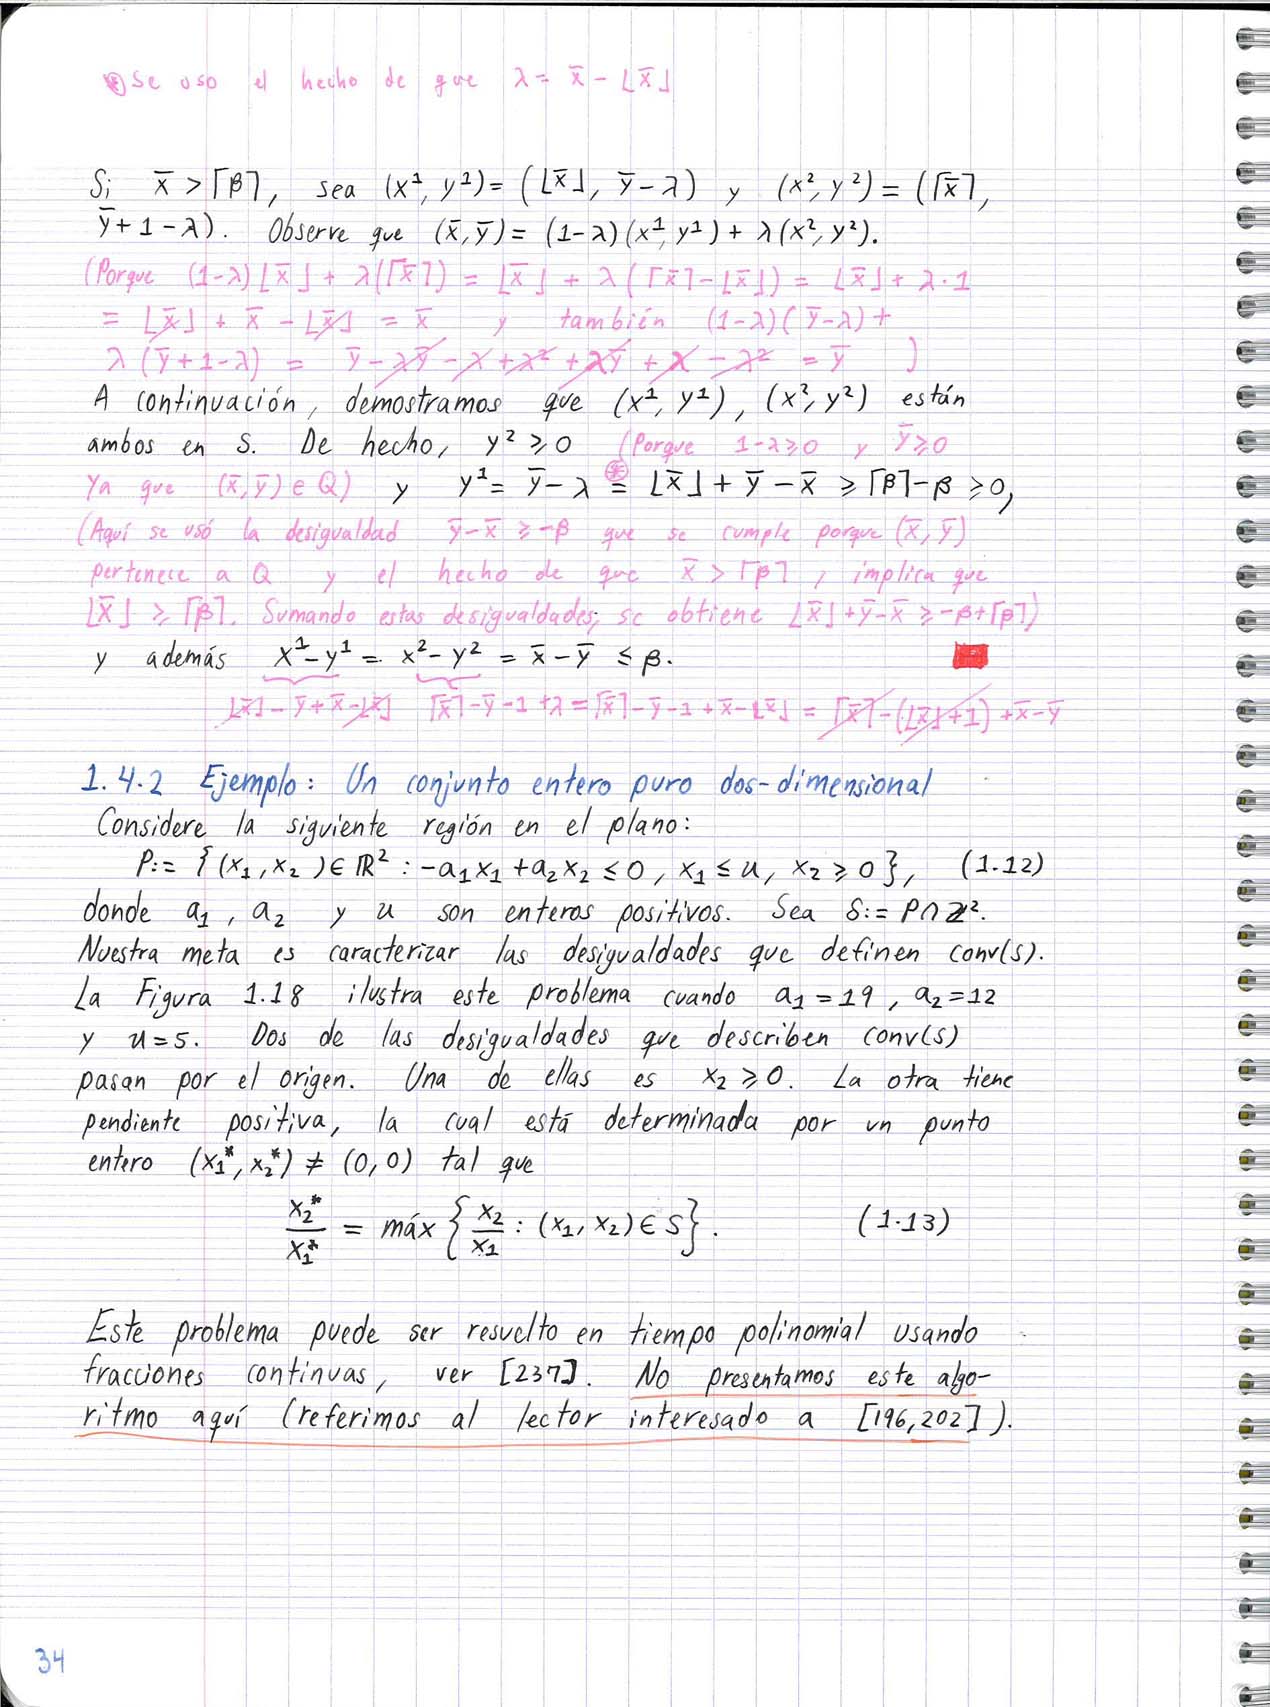 ⊛ Se uso el hecho de que λ = x̄ - ⌊x̄⌋
Si x̄ > ⌈β⌉, sea (x¹, y¹) = (⌊x̄⌋, ȳ - λ) y (x², y²) = (⌈x̄⌉,
ȳ + 1 - λ). Observe que (x̄, ȳ) = (1-λ)(x¹, y¹) + λ(x², y²).
(Porque (1-λ)⌊x̄⌋ + λ(⌈x̄⌉) = ⌊x̄⌋ + λ(⌈x̄⌉ - ⌊x̄⌋) = ⌊x̄⌋ + λ·1
= ⌊x̄⌋ + x̄ - ⌊x̄⌋ = x̄ y también (1-λ)(ȳ-λ) +
λ(ȳ+1-λ) = ȳ - λȳ - λ + λ² + λȳ + λ - λ² = ȳ )
A continuación, demostramos que (x¹, y¹), (x², y²) están
ambos en S. De hecho, y² ⩾ 0 (Porque 1-λ ⩾ 0 y ȳ ⩾ 0
Ya que (x̄, ȳ) ∈ Q) y y¹ = ȳ - λ ⊛= ⌊x̄⌋ + ȳ - x̄ ⩾ ⌈β⌉ - β ⩾ 0,
(Aquí se usó la desigualdad ȳ - x̄ ⩾ -β que se cumple porque (x̄, ȳ)
pertenece a Q y el hecho de que x̄ > ⌈β⌉, implica que
⌊x̄⌋ ⩾ ⌈β⌉. Sumando estas desigualdades, se obtiene ⌊x̄⌋ + ȳ - x̄ ⩾ -β + ⌈β⌉)
y además x¹ - y¹ = x² - y² = x̄ - ȳ ≤ β.
⌊x̄⌋ - ȳ + x̄ - ⌊x̄⌋ ⌈x̄⌉ - ȳ - 1 + λ = ⌈x̄⌉ - ȳ - 1 + x̄ - ⌊x̄⌋ = ⌈x̄⌉ - (⌊x̄⌋ + 1) + x̄ - ȳ
1.4.2 Ejemplo: Un conjunto entero puro dos-dimensional
Considere la siguiente región en el plano:
P := {(x₁, x₂) ∈ ℝ² : -a₁x₁ + a₂x₂ ≤ 0, x₁ ≤ u, x₂ ⩾ 0}, (1.12)
donde a₁, a₂ y u son enteros positivos. Sea S := P ∩ ℤ².
Nuestra meta es caracterizar las desigualdades que definen conv(S).
La Figura 1.18 ilustra este problema cuando a₁ = 19, a₂ = 12
y u = 5. Dos de las desigualdades que describen conv(S)
pasan por el origen. Una de ellas es x₂ ⩾ 0. La otra tiene
pendiente positiva, la cual está determinada por un punto
entero (x₁*, x₂*) ≠ (0, 0) tal que
x₂*/x₁* = máx {x₂/x₁ : (x₁, x₂) ∈ S}. (1.13)
Este problema puede ser resuelto en tiempo polinomial usando
fracciones continuas, ver [237]. No presentamos este algo-
ritmo aquí (referimos al lector interesado a [196, 202]).
34